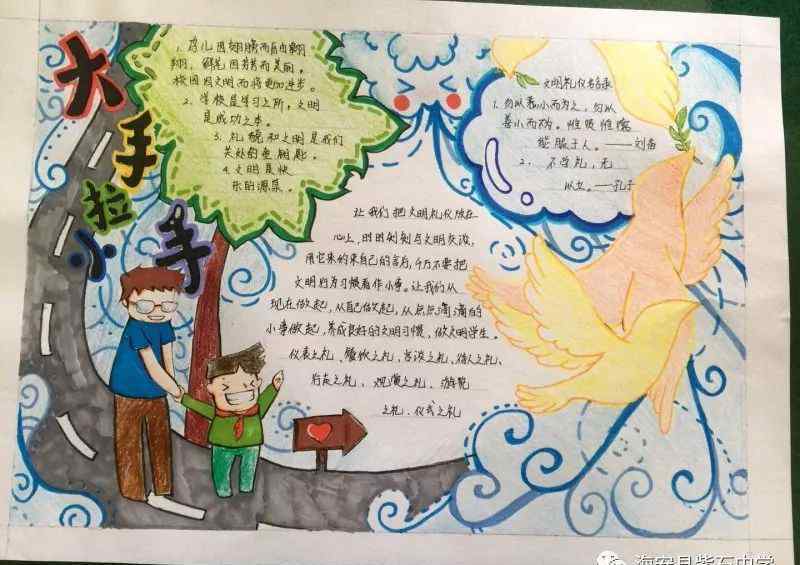 大手
拉
小手
1. 鸟儿因翅膀而自由翱
翔，鲜花因芬芳而美丽，
校园因文明而将更加进步。
2. 学校是学习之所，文明
是成功之本。
3. 礼貌和文明是我们
共处的金钥匙。
4. 文明是快
乐的源泉。
文明礼仪名言录
1. 勿以恶小而为之，勿以
善小而不为。惟贤惟德，
能服于人。——刘备
2、不学礼，无
以立。——孔子
让我们把文明礼仪放在
心上，时时刻刻与文明交流，
用它来约束自己的言行，千万不要把
文明行为习惯看作小事。让我们从
现在做起，从自己做起，从点点滴滴的
小事做起，养成良好的文明习惯，做文明学生。
仪表之礼、餐饮之礼、言谈之礼、待人之礼、
行走之礼、观赏之礼、游览
之礼、仪式之礼
海安县紫石中学